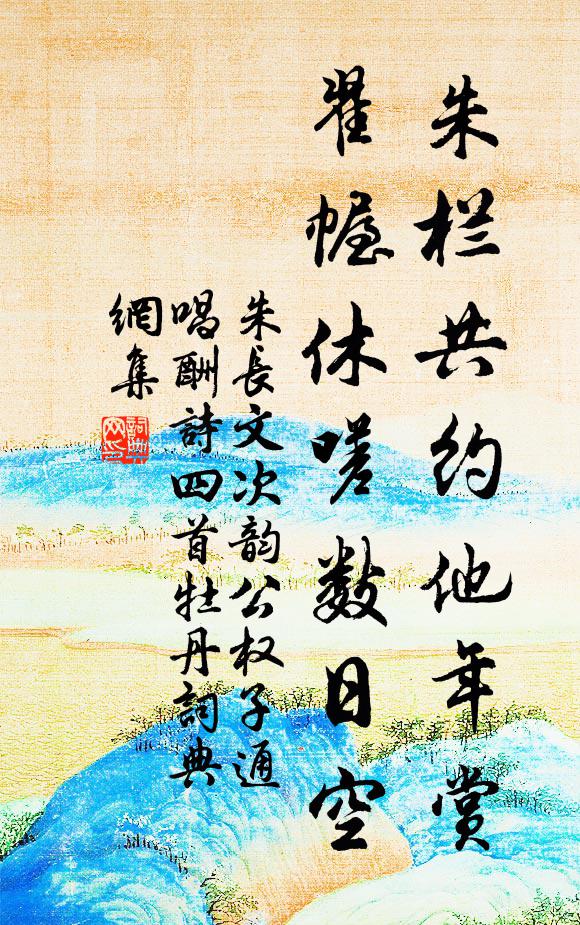 朱栏共约他年赏
翟幄休嗟数日空
朱長文次韵公权子通
唱酬詩四首牡丹詞典
網集
詞典網